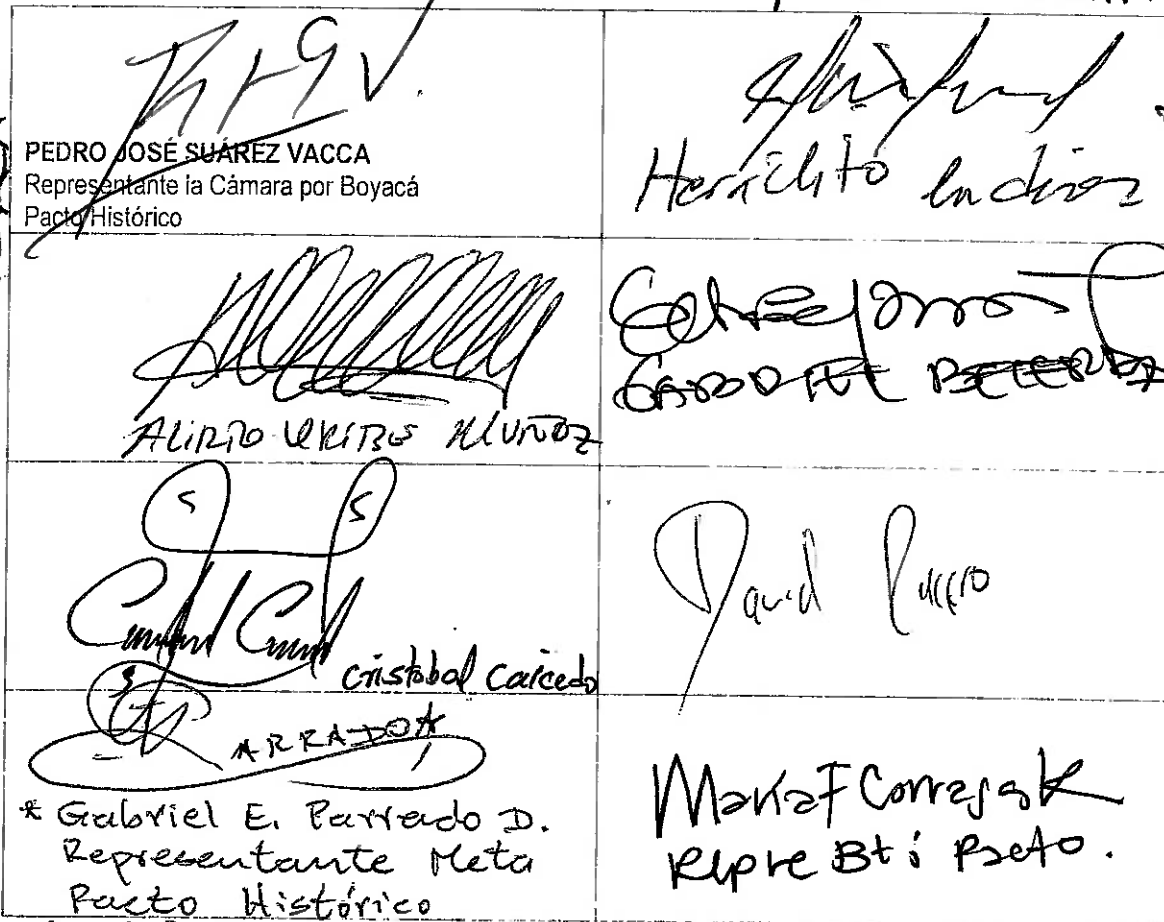 PEDRO JOSÉ SUÁREZ VACCA
Representante la Cámara por Boyacá
Pacto Histórico
Heraclito Landinez
ALIRIO URIBE MUÑOZ
GABRIEL BECERRA
Cristobal Caicedo
David Racero
PARRADO*
* Gabriel E. Parrado D.
Representante Meta
Pacto Histórico
María F Carrascal
Repre Bta Pacto.